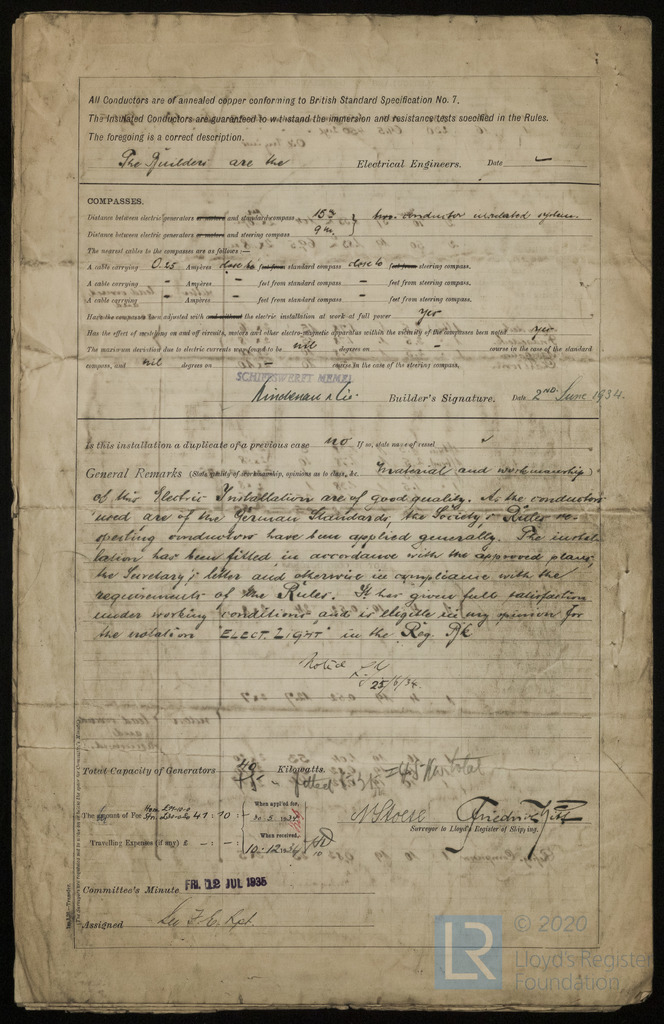 All Conductors are of annealed copper conforming to British Standard Specification No. 7.
The Insulated Conductors are guaranteed to withstand the immersion and resistance tests specified in the Rules.
The foregoing is a correct description.
The Builders are the Electrical Engineers. Date —
COMPASSES.
Distance between electric generators or motors and standard compass 15 m } two conductor insulated system.
Distance between electric generators or motors and steering compass 9 m.
The nearest cables to the compasses are as follows:—
A cable carrying 0.25 Ampères close to feet from standard compass close to feet from steering compass.
A cable carrying – Ampères – feet from standard compass – feet from steering compass.
A cable carrying – Ampères – feet from standard compass – feet from steering compass.
Have the compasses been adjusted with and without the electric installation at work at full power yes
Has the effect of switching on and off circuits, motors and other electro-magnetic apparatus within the vicinity of the compasses been noted yes.
The maximum deviation due to electric currents was found to be nil degrees on – course in the case of the standard
compass, and nil degrees on – course in the case of the steering compass.
SCHIFFSWERFT MEMEL
Lindenau & Cie. Builder's Signature. Date 2ND June 1934.
Is this installation a duplicate of a previous case no If so, state name of vessel
General Remarks (State quality of workmanship, opinions as to class, &c. Material and workmanship
of this Electric Installation are of good quality. As the conductors
used are of the German Standards, the Society's Rules re-
specting conductors have been applied generally. The instal-
lation has been fitted in accordance with the approved plans,
the Secretary's letter and otherwise in compliance with the
requirements of the Rules. It has given full satisfaction
under working conditions and is eligible in my opinion for
the notation ELECT. LIGHT in the Reg. Bk
Noted
25/6/34.
Total Capacity of Generators 40 Kilowatts.
fitted
The Amount of Fee 41 : 10 : – When applied for, 30.5.1934
When received,
Travelling Expenses (if any) £ – : – : 10.12.1934
Surveyor to Lloyd's Register of Shipping.
Committee's Minute FRI. 12 JUL 1935
Assigned See F.E. Rpt.
© 2020
LR
Lloyd's Register
Foundation